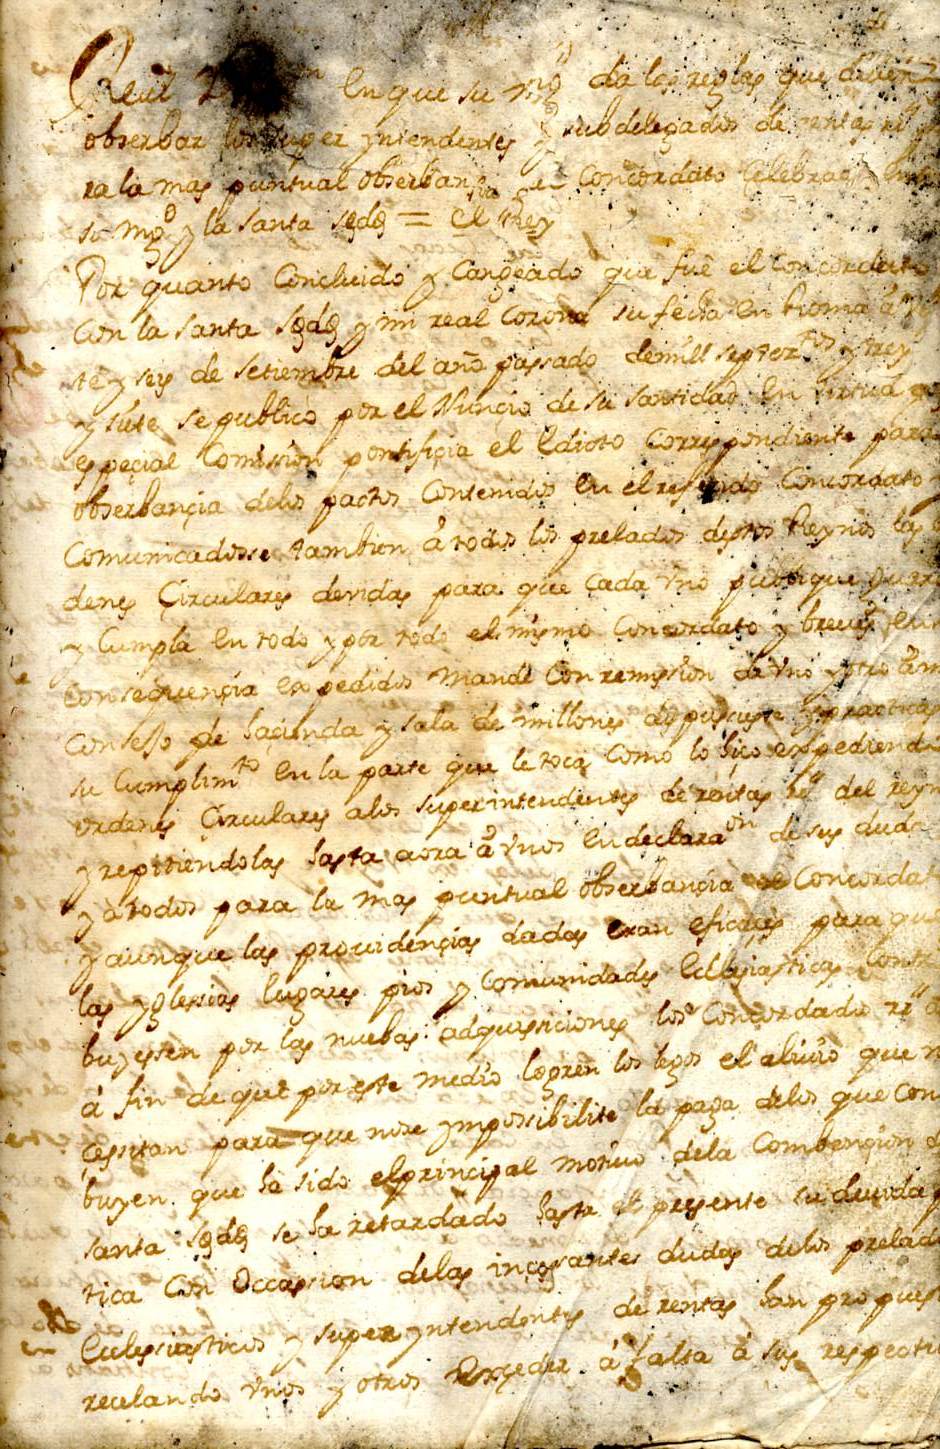 Real en que su Mgd da las reglas que deven
obserbar los super yntendentes y subdelegados de rentas rs
ra la mas puntual obserbanzia Concordato Celebrado
su Mgd y la santa sede = el Rey
Por quanto Concluido y Cangeado que fué el Concordato
Con la santa sede y mi real Corona su fecha en Roma á
te y seis de setiembre del año passado de mill septeztos y trey
y siete se publicó por el Nunçio de su santidad en virtud
espeçial Comission pontifiçia el Edicto Correspondiente para
obserbançia delos pactos Contenidos en el referido Concordato
Comunicadosse tambien á todos los prelados destos Reynos las
denes Çirculares devidas para que Cada vno publique
y Cumpla en todo y por todo el mismo Concordato y breves
Consequençia expedidos Mandé Con remission de vno y otro
Consejo de haçienda y sala de millones
su Cumplimto en la parte que le toca Como lo hiço expediendo
ordenes Çirculares alos superintendentes de rentas rs del reyn
y repitiendolas hasta aora á vnos en declaraon de sus duda
y a todos para la mas puntual obserbançia Concordat
y aunque las providençias dadas eran eficaçes para que
las yglesias lugares pios y Comunidades Eclesiasticas Contr
buyessen por las nuebas adquisiciones los Conçordados rs
á fin de que por este medio logren los legos el alivio que n
cessitan para que nose ymposibilite la paga delos que Con
buyen que ha sido elprincipal motivo dela Combençion
santa sede se ha retardado hasta el presente su devida
tica Con occassion delas inçesantes dudas delos prelad
Eclesiasticos y super yntendentes de rentas han propues
recelando vnos y otros exçeder á falta á sus respecti